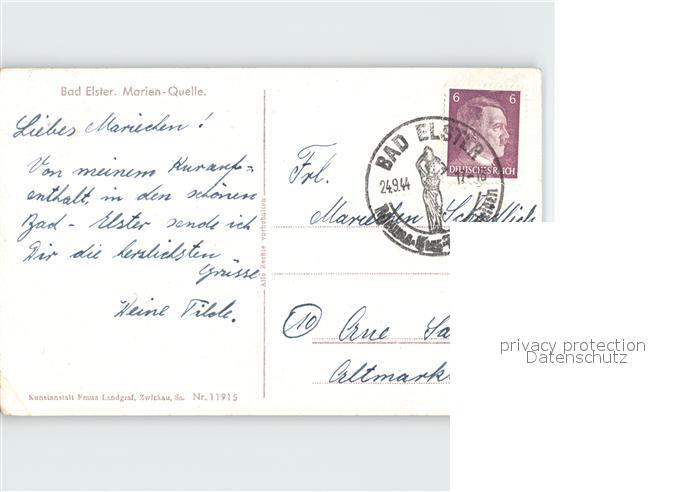 Bad Elster. Marien-Quelle.
Liebes Mariechen!
Von meinem Kurauf=
enthalt, in den schönen
Bad-Elster sende ich
Dir die herzlichsten
Grüsse
Deine Tilde.
Kunstanstalt Franz Landgraf, Zwickau, Sa. Nr. 11915
Alle Rechte vorbehalten
6 6
DEUTSCHES REICH
BAD ELSTER
24.9.44 17-18
Frl.
Mariechen
(10)
Altmark
privacy protection
Datenschutz